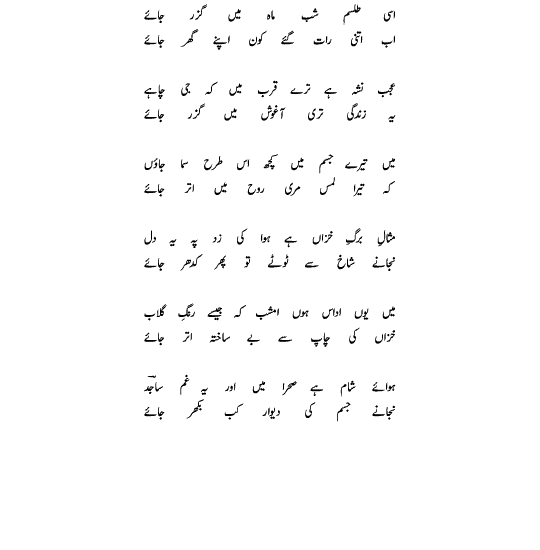 اسی طلسم شب ماہ میں گزر جائے
اب اتنی رات گئے کون اپنے گھر جائے
عجب نشہ ہے ترے قرب میں کہ جی چاہے
یہ زندگی تری آغوش میں گزر جائے
میں تیرے جسم میں کچھ اس طرح سما جاؤں
کہ تیرا لمس مری روح میں اتر جائے
مثالِ برگِ خزاں ہے ہوا کی زد پہ یہ دل
نجانے شاخ سے ٹوٹے تو پھر کدھر جائے
میں یوں اداس ہوں امشب کہ جیسے رنگِ گلاب
خزاں کی چاپ سے بے ساختہ اتر جائے
ہوائے شام ہے صحرا میں اور یہ غم ساجدؔ
نجانے جسم کی دیوار کب بکھر جائے